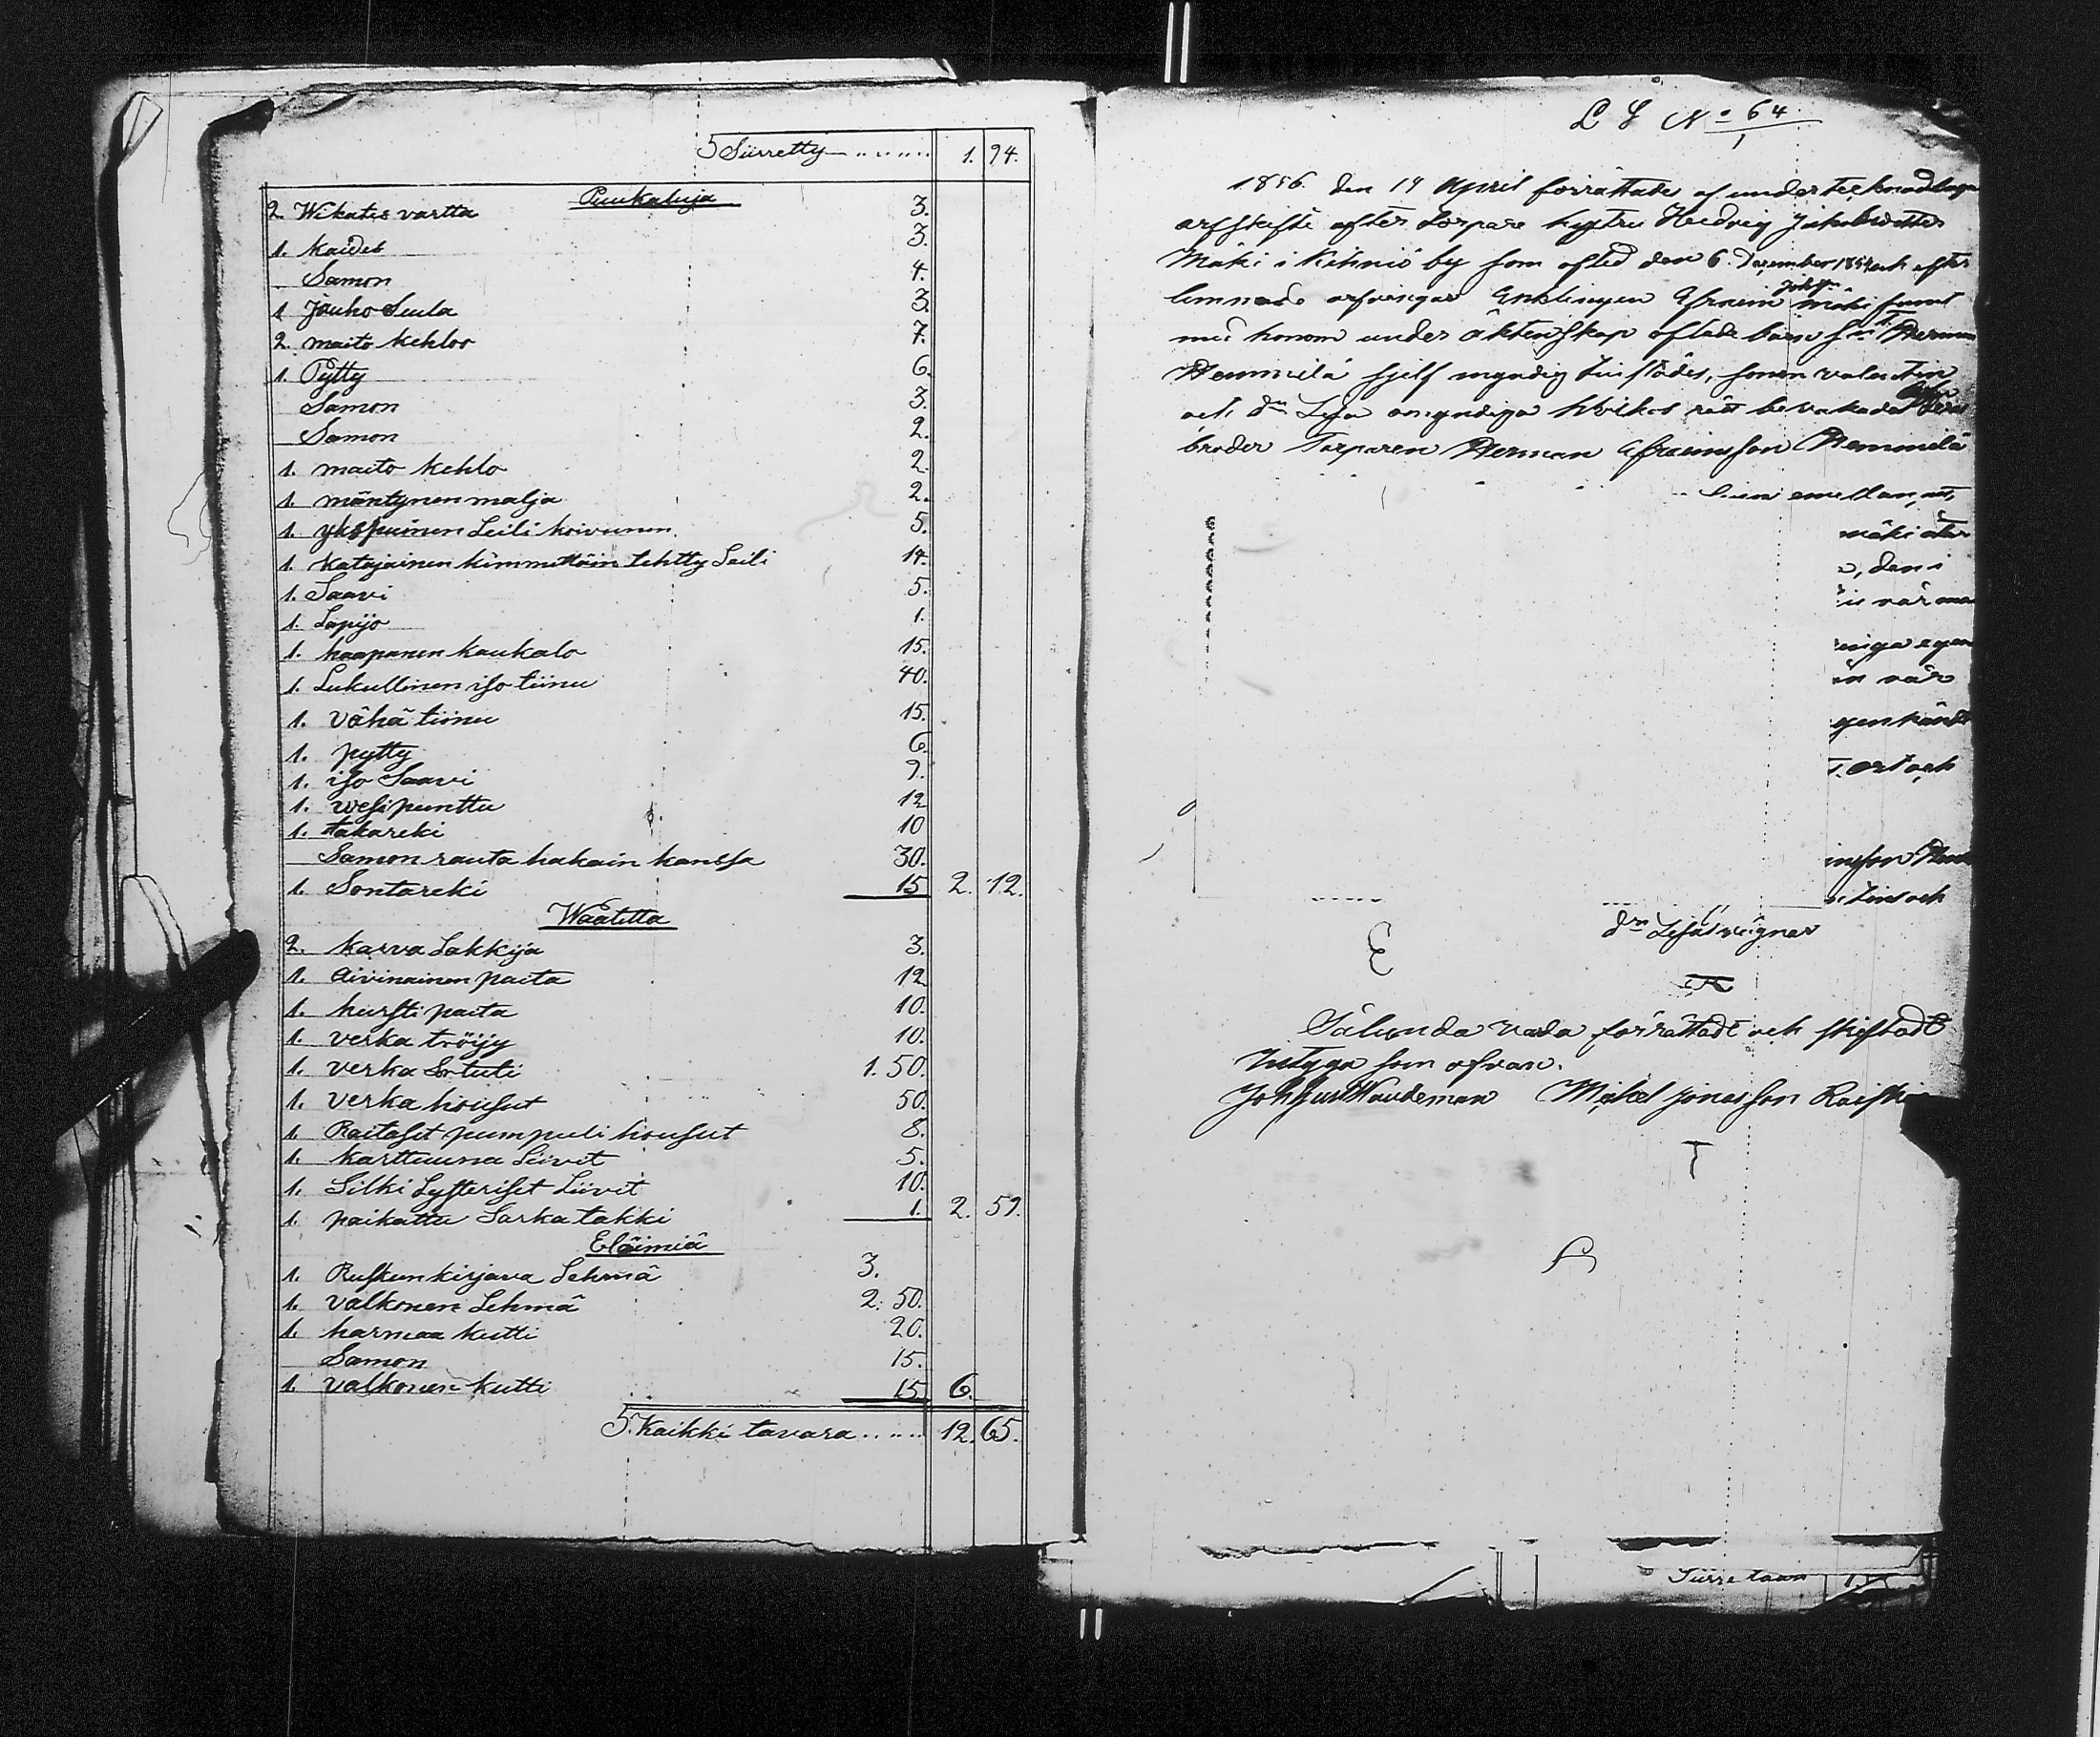 S Siirretty 1. 94.
Puukaluja
2. Wikates vartta 3.
1. Kaides 3.
Samon 4.
1 Jauho Seula 3.
2. maito kehloo 7.
1. Pytty 6.
Samon 3.
Samon 2.
1. maito kehlo 2.
1. mäntynen malja 2.
1. ykspuinen Leili koivunen 5.
1. katajainen kimmittäin tehtty Leili 14.
1. Saavi 5.
1. Lapijo 1.
1. haapanen kaukalo 15.
1. Lukullinen iso tiinu 40.
1. vähä tiinu 15.
1. pytty 6.
1. iso Saavi 9.
1. wesi punttu 12
1. takareki 10
Samon rauta hakain kanssa 30.
1. Sontareki 15 2. 12.
Waatetta
2. karva Lakkija 3.
1. Aivinainen paita 12
1. hursti paita 10.
1. verka tröijy 10.
1. verka Sortuti 1. 50.
1. verka housut 50.
1. Raitaset pumpuli housut 8.
1. karttuuna Liivit 5.
1. Silki Lysteriset Liivit 10.
1. paikattu Sarka takki 1. 2. 59.
Eläimiä
1. Rusken kirjava Lehmä 3.
1. valkonen Lehmä 2. 50.
1. harmaa kutti 20.
Samon 15.
1. valkonen kutti 15 6.
S. Kaikki tavara 12. 65.
L S No 64
1856. den 14 April förrättades af undertecknad laga
arfskifte efter Torpare hystru Hedvig Jakobsdotter
Mäki i Kihniö by som afled den 6. December 1854 och efter
lemnade arfvingar Enklingen Efraim Mäki samt
med honom under äktenskap aflade barn Herman
Hemmilä sjelf myndig tillstädes, sonen valentin
och dn Lisa omyndiga hvilkas rätt bevakades
broder Torparen Herman Efraimsson Hemmilä
emellan,
mäki
, den i
vår
inga egen
vår
genkände
ort och
och
dn Lisas vägnar
Sålunda vara förrättadt och skiftadt
Intyga som ofvan.
Joh Gust Waudeman Mickel Jonasson
Siirretään